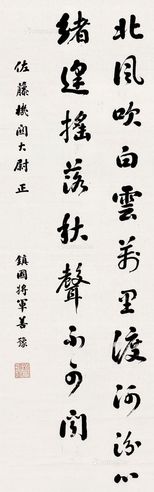 北風吹白雲萬里渡河汾心
緒逢搖落秋聲不可聞
佐藤機關大尉正
鎮國將軍善豫